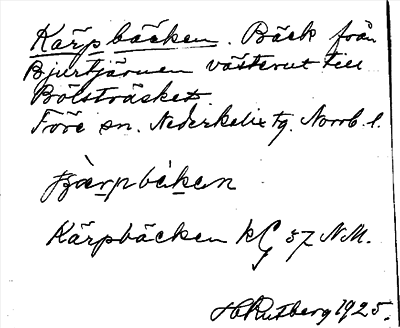 Kärpbäcken. Bäck från
Bjurtjärnen västerut till
Bölsträsket.
Töre sn. Nederkalix tg. Norrb. l.
Kärpbäcken kG 57 N.M.
H Rutberg 1925.